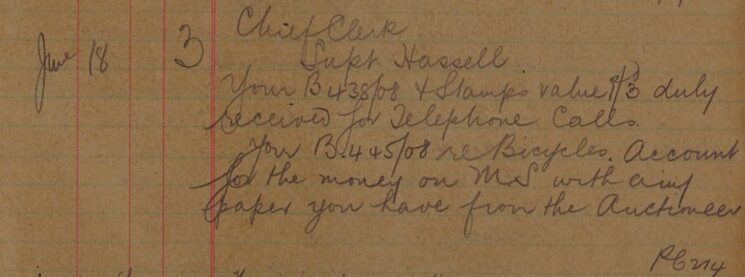 June 18 3 Chief Clerk
Supt Hassell
Your B 438/08 & Stamps value 9/3 duly
received for Telephone Calls.
Your B.445/08 re Bicycles. Account
for the money on M.S with any
paper you have from the Auctioneer